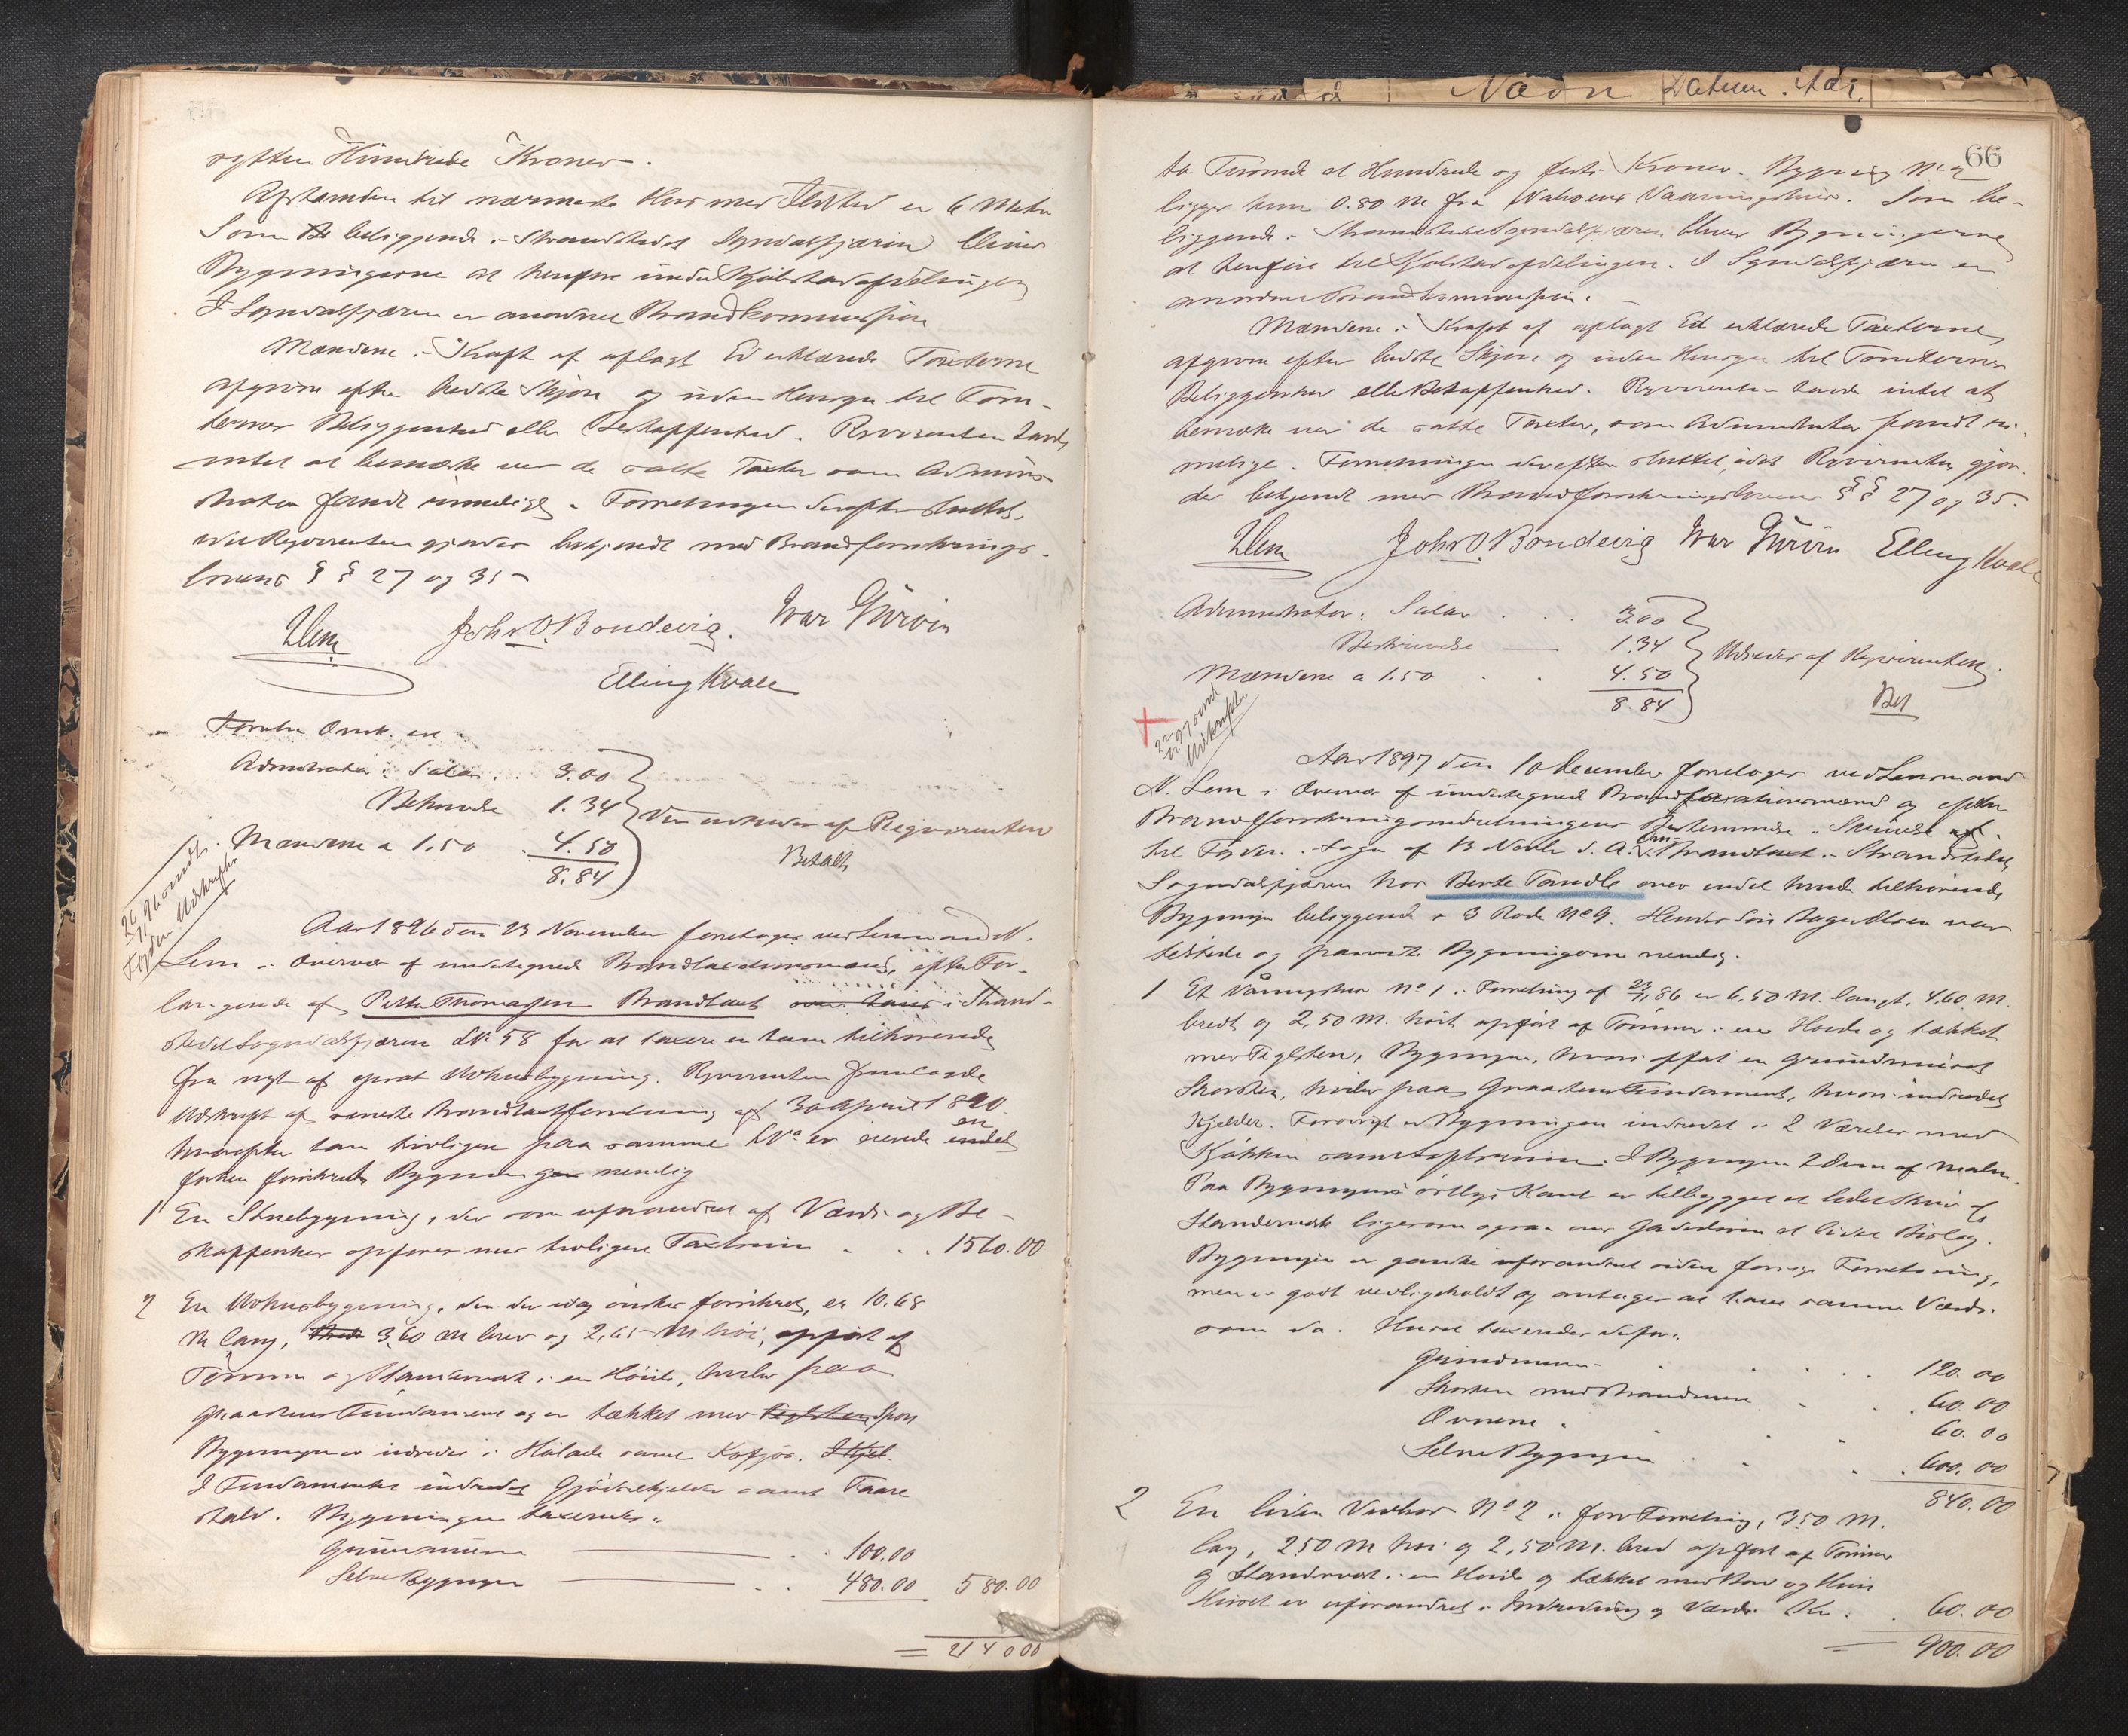 og Hundrede Kroner.
Afstanden til nærmeste Hus med Ildsted er 6 Meter
Som beliggende i Strandstedet Sogndalsfjæren bliver
Bygningerne at henføre under Kjøbstadafdelingen
I Sogndalsfjæren er anordnet Brandkommission
Mændene i Kraft af aflagt Ed erklærede Taxterne
afgivne efter bedste Skjøn og uden Hensyn til Tom-
ternes Beliggenhed eller Beskaffenhed. Rqvirenten havde
intet at bemærke ved de satte Taxter som Admini-
strator fandt rimelige. Forretningen derefter sluttet,
idet Rqvirenten gjordes bekjendt med Brandforsikrings-
lovens § § 27 og 35
Lem John O. Bondevig. Ivar Gurvin
Elling Kvale
Administrator: Salær . . 3.00
Beskrivelse 1.34
Mændene a 1.50 . 4.50
8.84
Den udredes af Reqvirenten
Betalt
Aar 1896 den 23 November foretoges ved Lensmand N.
Lem i Overvær af undertegnede Brandtaxationsmænd, efter For-
langende af Petter Thomassen Brandtaxt i Strand-
stedet Sogndalsfjæren LNo 58 for at taxere en ham tilhørende
fra nyt af opsat Udhusbygning. Rqvirenten fremlagde
Udskrift af seneste Brandtaxtforretning af 30 April 1890
hvorefter han tidligere paa samme LNo er eiende en
forhen forsikret Bygning nemlig
1 En Stuebygning, der som uforandret af Værdi og Be-
skaffenhed opføres med tidligere Taxtsum . . . 1560.00
2 En Udhusbygning, den der idag ønskes forsikret, er 10.68
M lang, 3,60 M bred og 2,65 M høi, opført af
Tømmer og Standværk i en Høide, hviler paa
Graastens Fundament og er tækket med Spon
Bygningen er indredet i Hølade samt Kofjøs.
I Fundamentet indredet Gjødselkjelder samt Faare
stald. Bygningen taxeredes:
Grundmuren . . 100.00
Selve Bygningen . . 480.00 580.00
= 2140 00
Nævn Datum. Aar.
66
to Tusinde et Hundrede og førti Kroner. Bygning No 2
ligger kun 0.80 M fra Naboens Vaaningshus. Som be-
liggende i Strandstedet Sogndalsfjæren bliver Bygningerne
at henføre til Kjøbstadafdelingen. I Sogndalsfjæren er
anordnet Brandkommission.
Mændene i Kraft af aflagt Ed erklærede Taxterne
afgivne efter bedste Skjøn og uden Hensyn til Tomternes
Beliggenhed eller Beskaffenhed. Rqvirenten havde intet at
bemærke ved de satte Taxter, som Administrator fandt ri-
melige. Forretningen derefter sluttet, idet Rqvirenten gjor-
des bekjendt med Brandforsikringslovens § § 27 og 35.
Lem John O. Bondevig Ivar Gurvin Elling Kvale
Administrator: Salær . . . 3.00
Beskrivelse 1.34
Mændene a 1.50 . . 4.50
8.84
Udredes af Rqvirenten.
Bet
Aar 1897 den 10 December foretoges ved Lensmand
N. Lem i Overvær af undertegnede Brandtaxationsmænd og efter
Brandforsikringsindretningens Bestemmelse i Skrivelse
til Fogden i Sogn af 13 Novbr d. A. Om-Brandtaxt i Strandstedet
Sogndalsfjæren hos Berte Tandle over endel hende tilhørende
Bygninger beliggende i 3 Rode No 9. Hendes Søn var
tilstede og paaviste Bygningerne nemlig.
1 Et Vaaningshus No 1 i Forretning af 23/7, 86 er 6,50 M. langt, 4,60 M.
bredt og 2,50 M. høit opført af Tømmer i en Høide og tækket
med Teglsten, Bygningen, hvori opsat en grundmuret
Skorsten, hviler paa Graastens Fundament, hvori indredet
Kjelder. Forøvrigt er Bygningen indredet i 2 Værelser med
Kjøkken samt Loftsrum. I Bygningen 2 Ovne af Malm.
Paa Bygningens østlige Kant er tilbygget et lidet Skur af
Standværk ligesom ogsaa over Gadedøren et lidet Bislag.
Bygningen er ganske uforandret siden forrige Forretning,
men er godt vedligeholdt og antages at have samme Værdi
som da. Huset taxeredes derfor:
Grundmuren . . . 120.00
Skorsten med Brandmur . . 60.00
Ovnene . . 60.00
Selve Bygningen . . . 600.00
840.00
2 En liden Vedbod No 2 i forr Forretning, 3.50 M.
lang, 2.50 M høi og 2,50 M. bred opført af Tømmer
og Standværk i en Høide og tækket med Bord og Hum
Huset er uforandret i Indredning og Værdi Kr. . 60.00
= 900.00